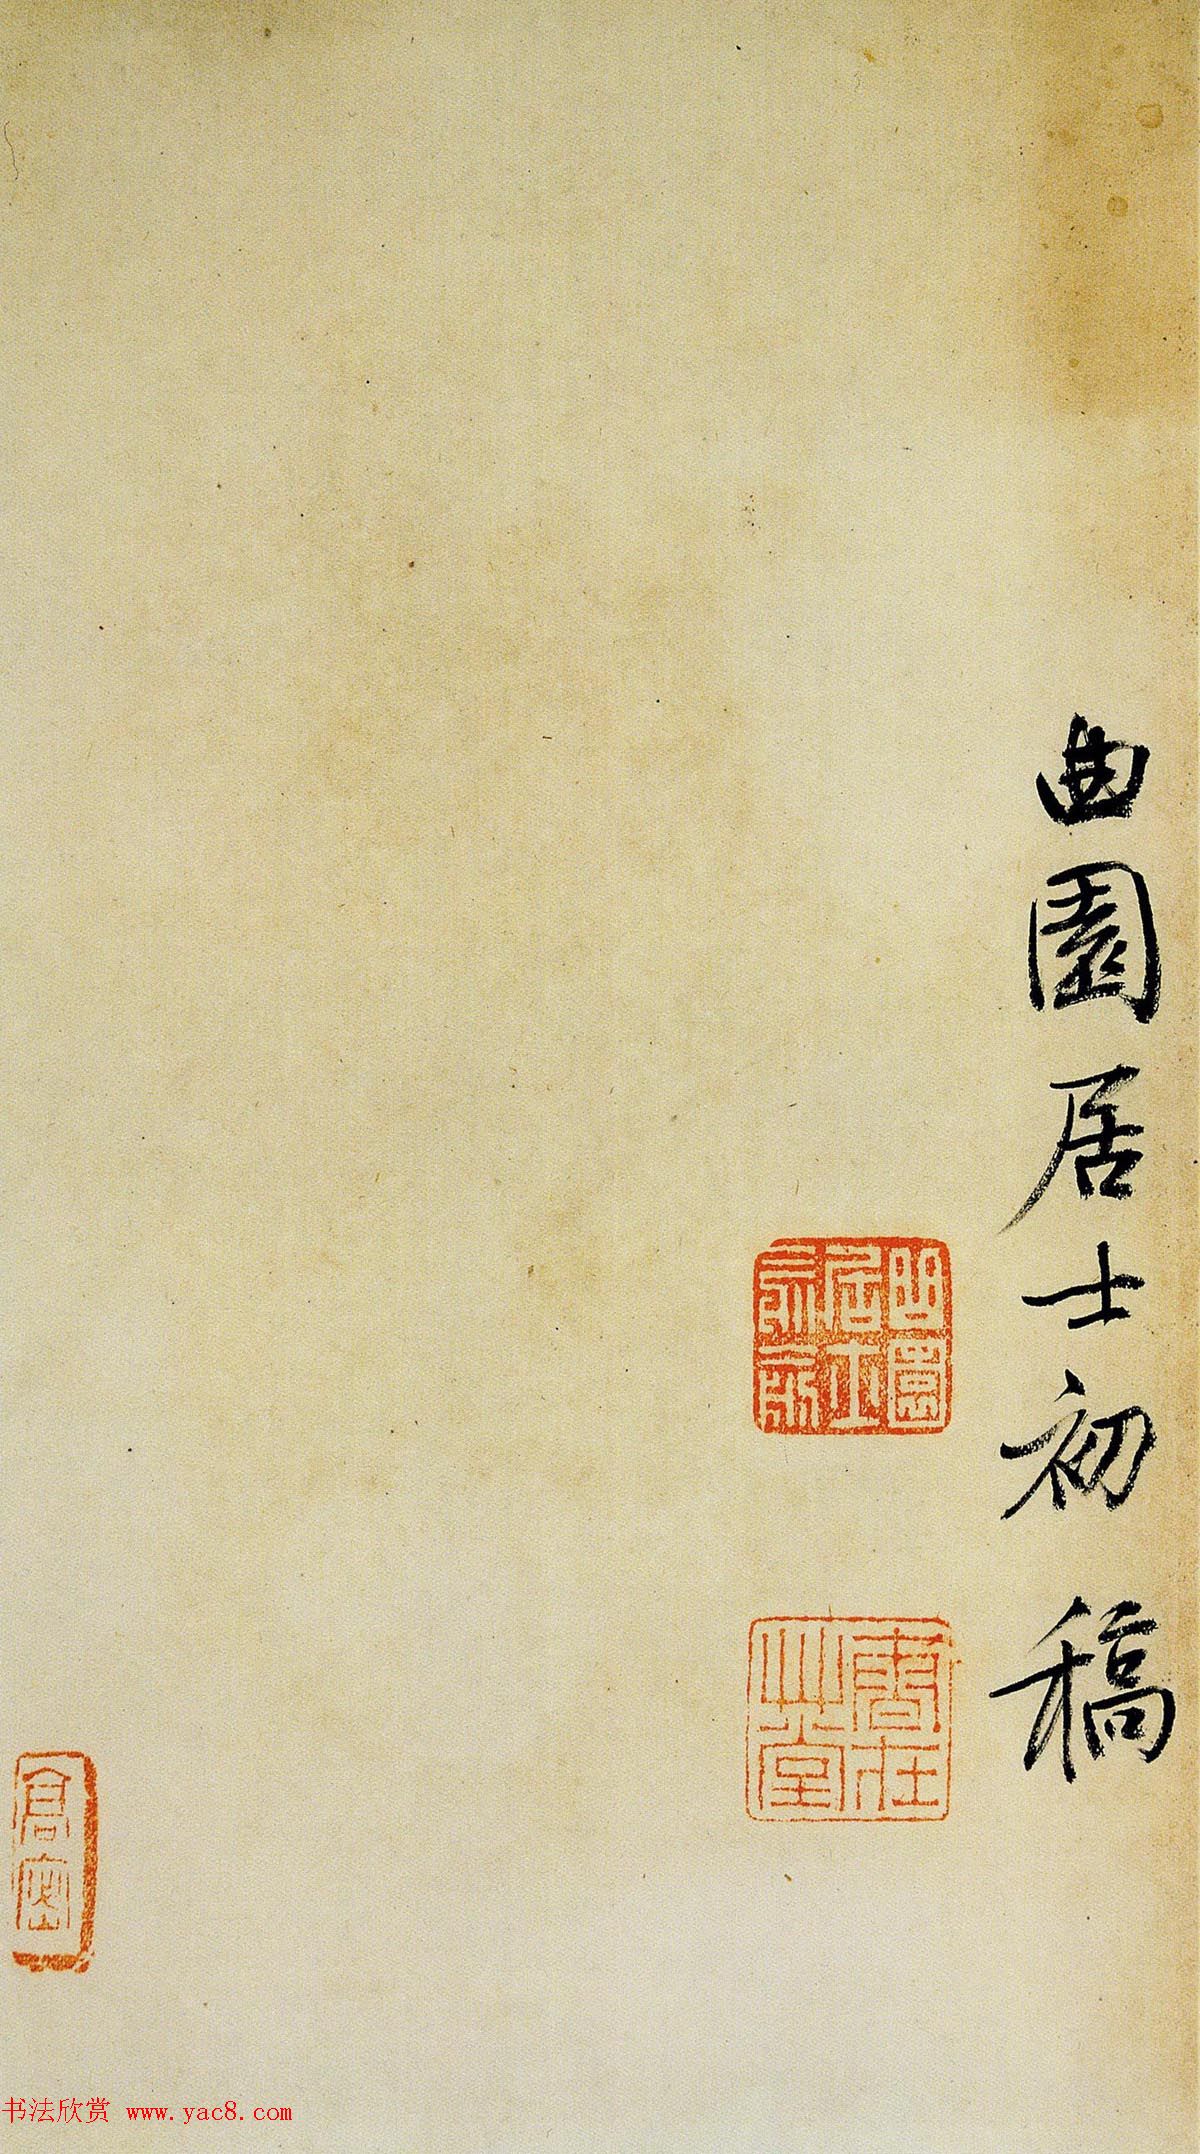 曲園居士初稿
曲園居士
春在艸堂
高密
书法欣赏 www.yac8.com